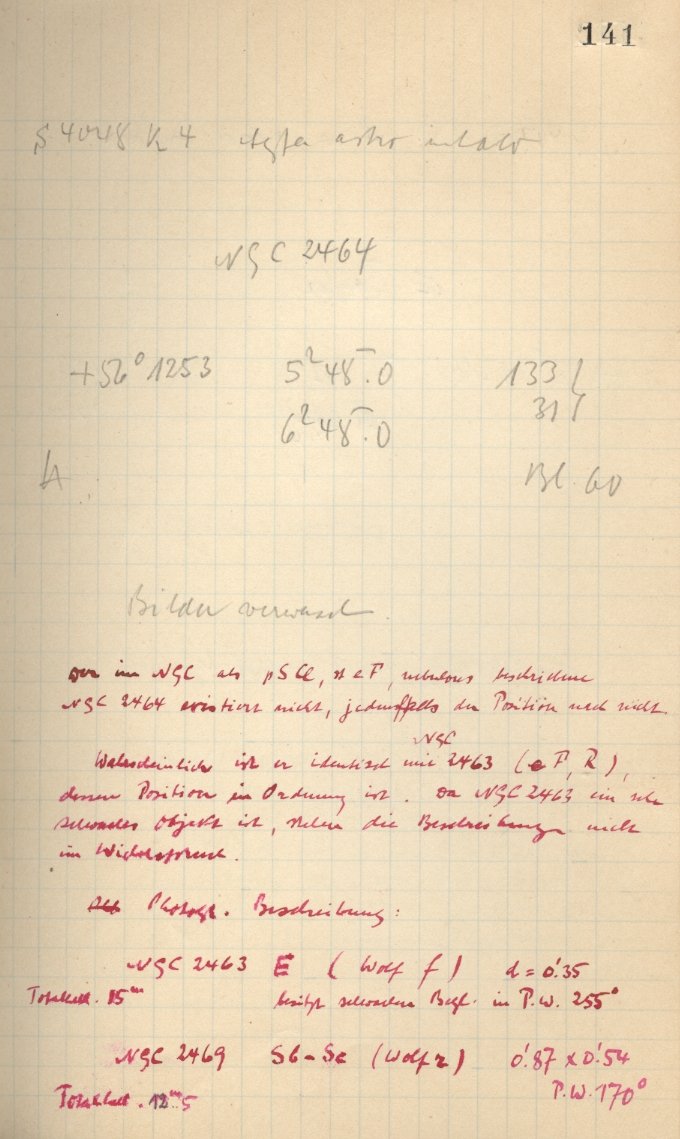 141
S 4048 K 4 Agfa astro
NGC 2464
+56° 1253 5² 48‾.0 133 }
6² 48‾.0 31 }
Bl. 60
Bilder verwasch
Der im NGC als pS Cl, st eF, nebulous beschriebene
NGC 2464 existiert nicht, jedenfalls der Position nach nicht.
NGC
Wahrscheinlich ist er identisch mit 2463 (eF, R),
dessen Position in Ordnung ist. Da NGC 2463 ein sehr
schwaches Objekt ist, stehen die Beschreibungen nicht
im Widerspruch.
Photogr. Beschreibung:
NGC 2463 E (Wolf f) d = 0!35
Totalhell. 15ᵐ besitzt schwachen Begl. in P.W. 255°
NGC 2469 Sb-Sc (Wolf r) 0!87 x 0!54
Totalhell. 12ᵐ.5 P.W. 170°